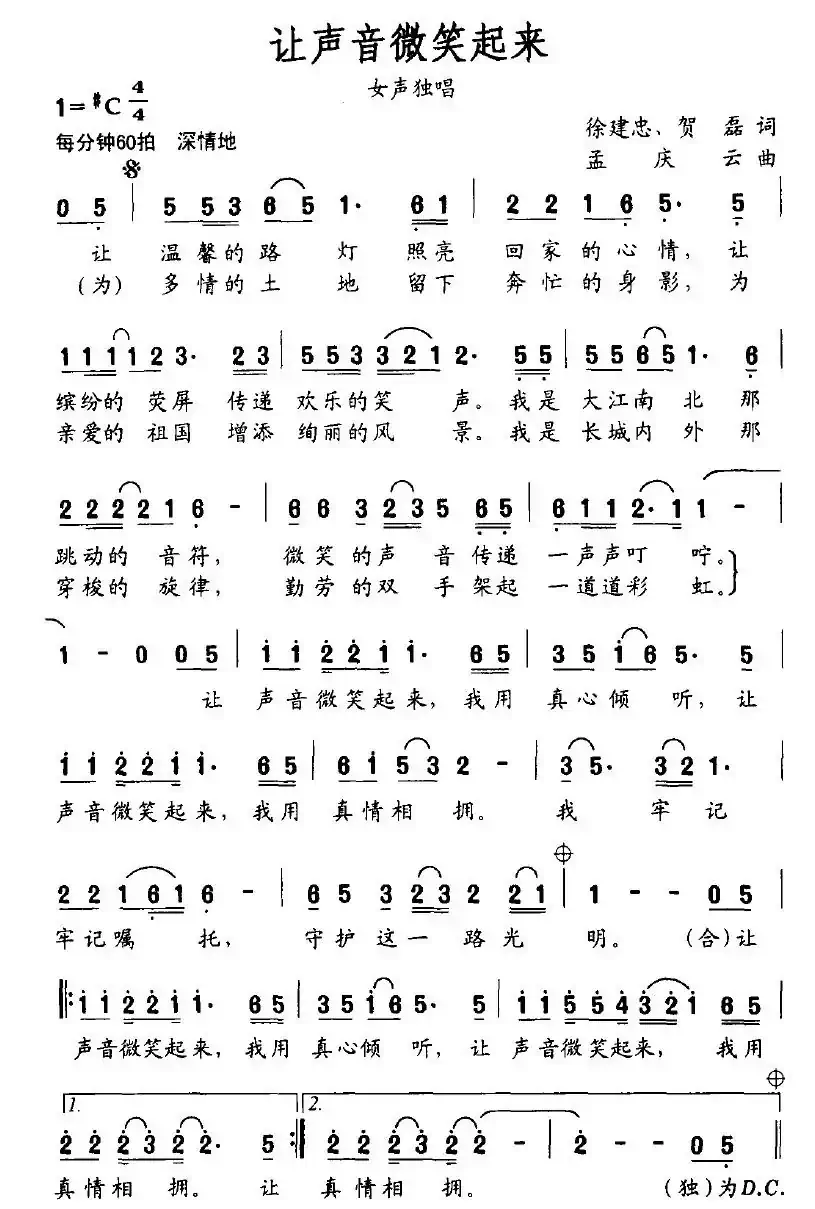 让声音微笑起来
女声独唱
1=#C 4/4
每分钟60拍 深情地
徐建忠、贺 磊 词
孟 庆 云 曲
0 5 | 5 5 5 3 6 5 1· 6 1 | 2 2 1 6 5· 5
让 温馨的路 灯 照亮 回家的心情,让
(为) 多情的土 地 留下 奔忙的身影,为
1 1 1 1 2 3· 2 3 | 5 5 3 3 3 2 1 2· 5 5 | 5 5 6 5 1· 6
缤纷的 荧屏 传递 欢乐的笑 声。我是 大江南 北 那
亲爱的 祖国 增添 绚丽的风 景。我是 长城内 外 那
2 2 2 2 1 6 - | 6 6 3 2 3 5 6 5 | 6 1 1 2· 1 1 -
跳动的 音符, 微笑 的声 音传递 一声声叮 咛。
穿梭的 旋律, 勤劳 的双 手架起 一道道彩 虹。
1 - 0 0 5 | 1 1 2 2 1 1· 6 5 | 3 5 1 6 5· 5
让 声音微笑起来,我用 真心倾 听,让
1 1 2 2 1 1· 6 5 | 6 1 5 3 2 - | 3 5· 3 2 1·
声音微笑起来,我用 真情相 拥。 我 牢记
2 2 1 6 1 6 - | 6 5 3 2 3 2 2 1 | 1 - - 0 5
牢记嘱 托, 守护这一 路光 明。 (合)让
1 1 2 2 1 1· 6 5 | 3 5 1 6 5· 5 | 1 1 5 5 4 3 2 1 6 5
声音微笑起来,我用 真心倾 听,让 声音微笑起来, 我用
1. 2.
2 2 2 3 2 2· 5 :| 2 2 2 3 2 2 - | 2 - - 0 5
真情相 拥。 让 真情相 拥。 (独)为D.C.